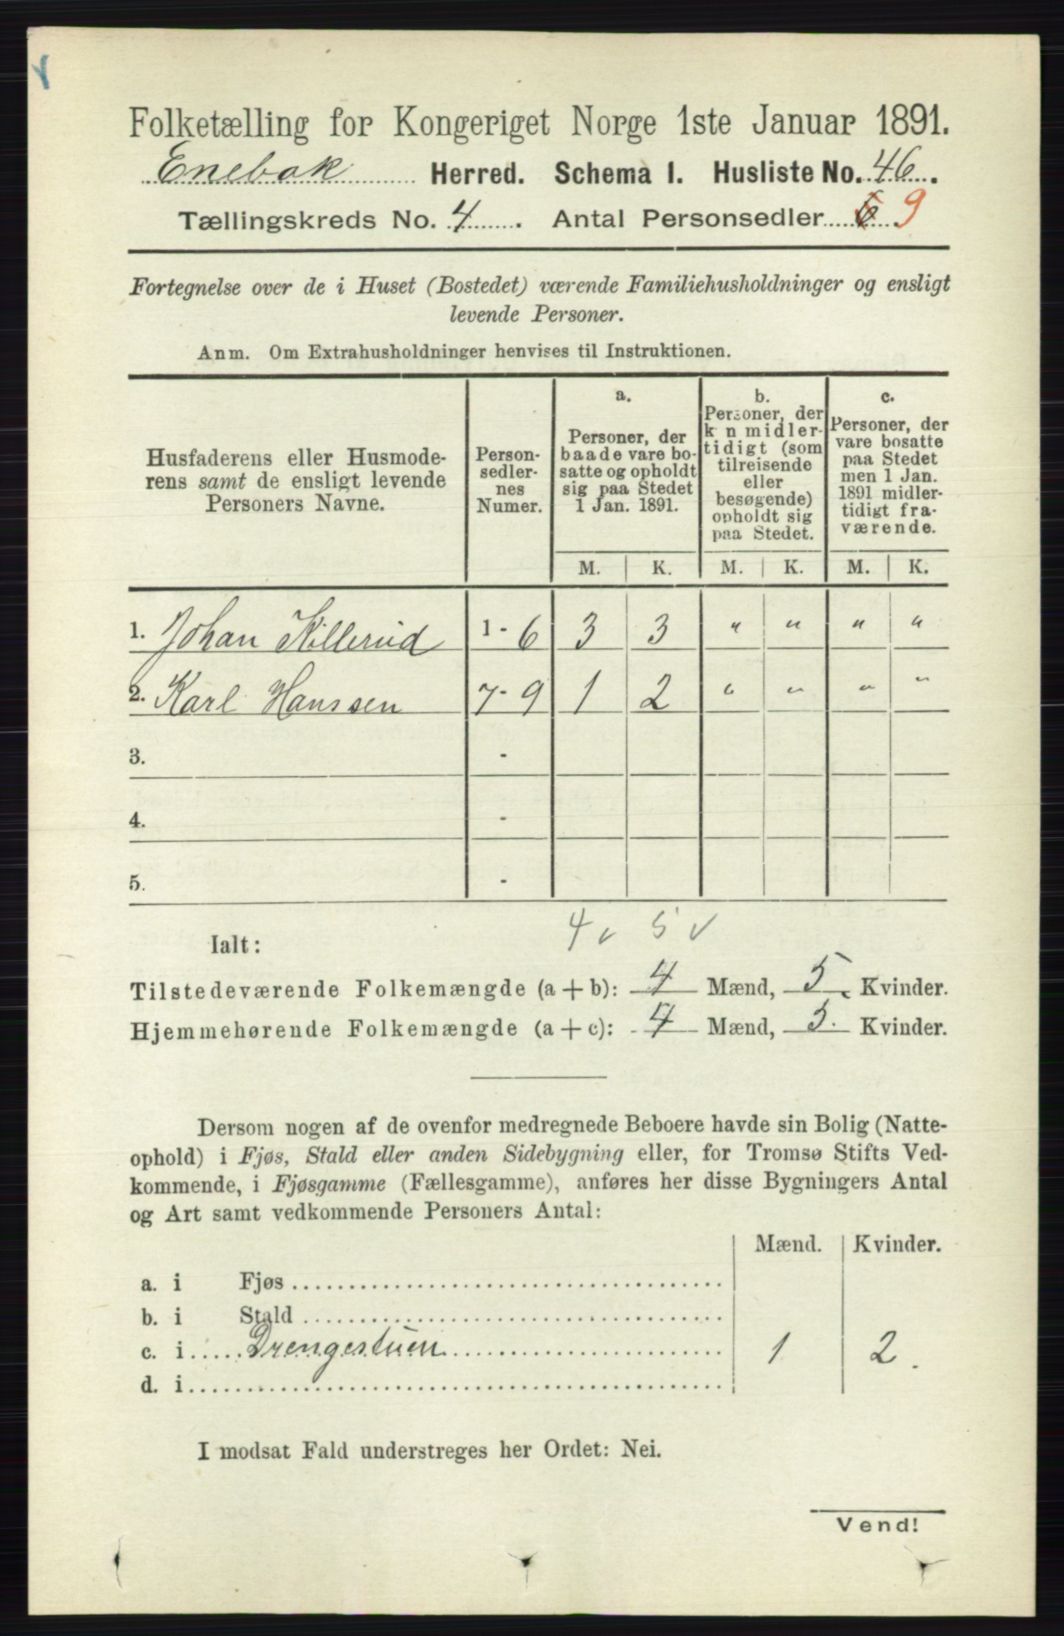 Folketælling for Kongeriget Norge 1ste Januar 1891.
Enebak Herred. Schema I. Husliste No. 46.
Tællingskreds No. 4. Antal Personsedler 6 9
Fortegnelse over de i Huset (Bostedet) værende Familiehusholdninger og ensligt
levende Personer.
Anm. Om Extrahusholdninger henvises til Instruktionen.
Husfaderens eller Husmode-
rens samt de ensligt levende
Personers Navne.
Person-
sedler-
nes
Numer.
a.
Personer, der
baade vare bo-
satte og opholdt
sig paa Stedet
1 Jan. 1891.
b.
Personer, der
k n midler-
tidigt (som
tilreisende
eller
besøgende)
opholdt sig
paa Stedet.
c.
Personer, der
vare bosatte
paa Stedet
men 1 Jan.
1891 midler-
tidigt fra-
værende.
M. K. M. K. M. K.
1. Johan Killerud 1 - 6 3 3 " " " "
2. Karl Hanssen 7 - 9 1 2 " " " "
3. -
4. -
5. -
4 v 5 v
Ialt:
Tilstedeværende Folkemængde (a + b): 4 Mænd, 5. Kvinder.
Hjemmehørende Folkemængde (a + c): 4 Mænd, 5. Kvinder.
Dersom nogen af de ovenfor medregnede Beboere havde sin Bolig (Natte-
ophold) i Fjøs, Stald eller anden Sidebygning eller, for Tromsø Stifts Ved-
kommende, i Fjøsgamme (Fællesgamme), anføres her disse Bygningers Antal
og Art samt vedkommende Personers Antal:
Mænd. Kvinder.
a. i Fjøs
b. i Stald
c. i Drengestuen 1 2.
d. i
I modsat Fald understreges her Ordet: Nei.
Vend!